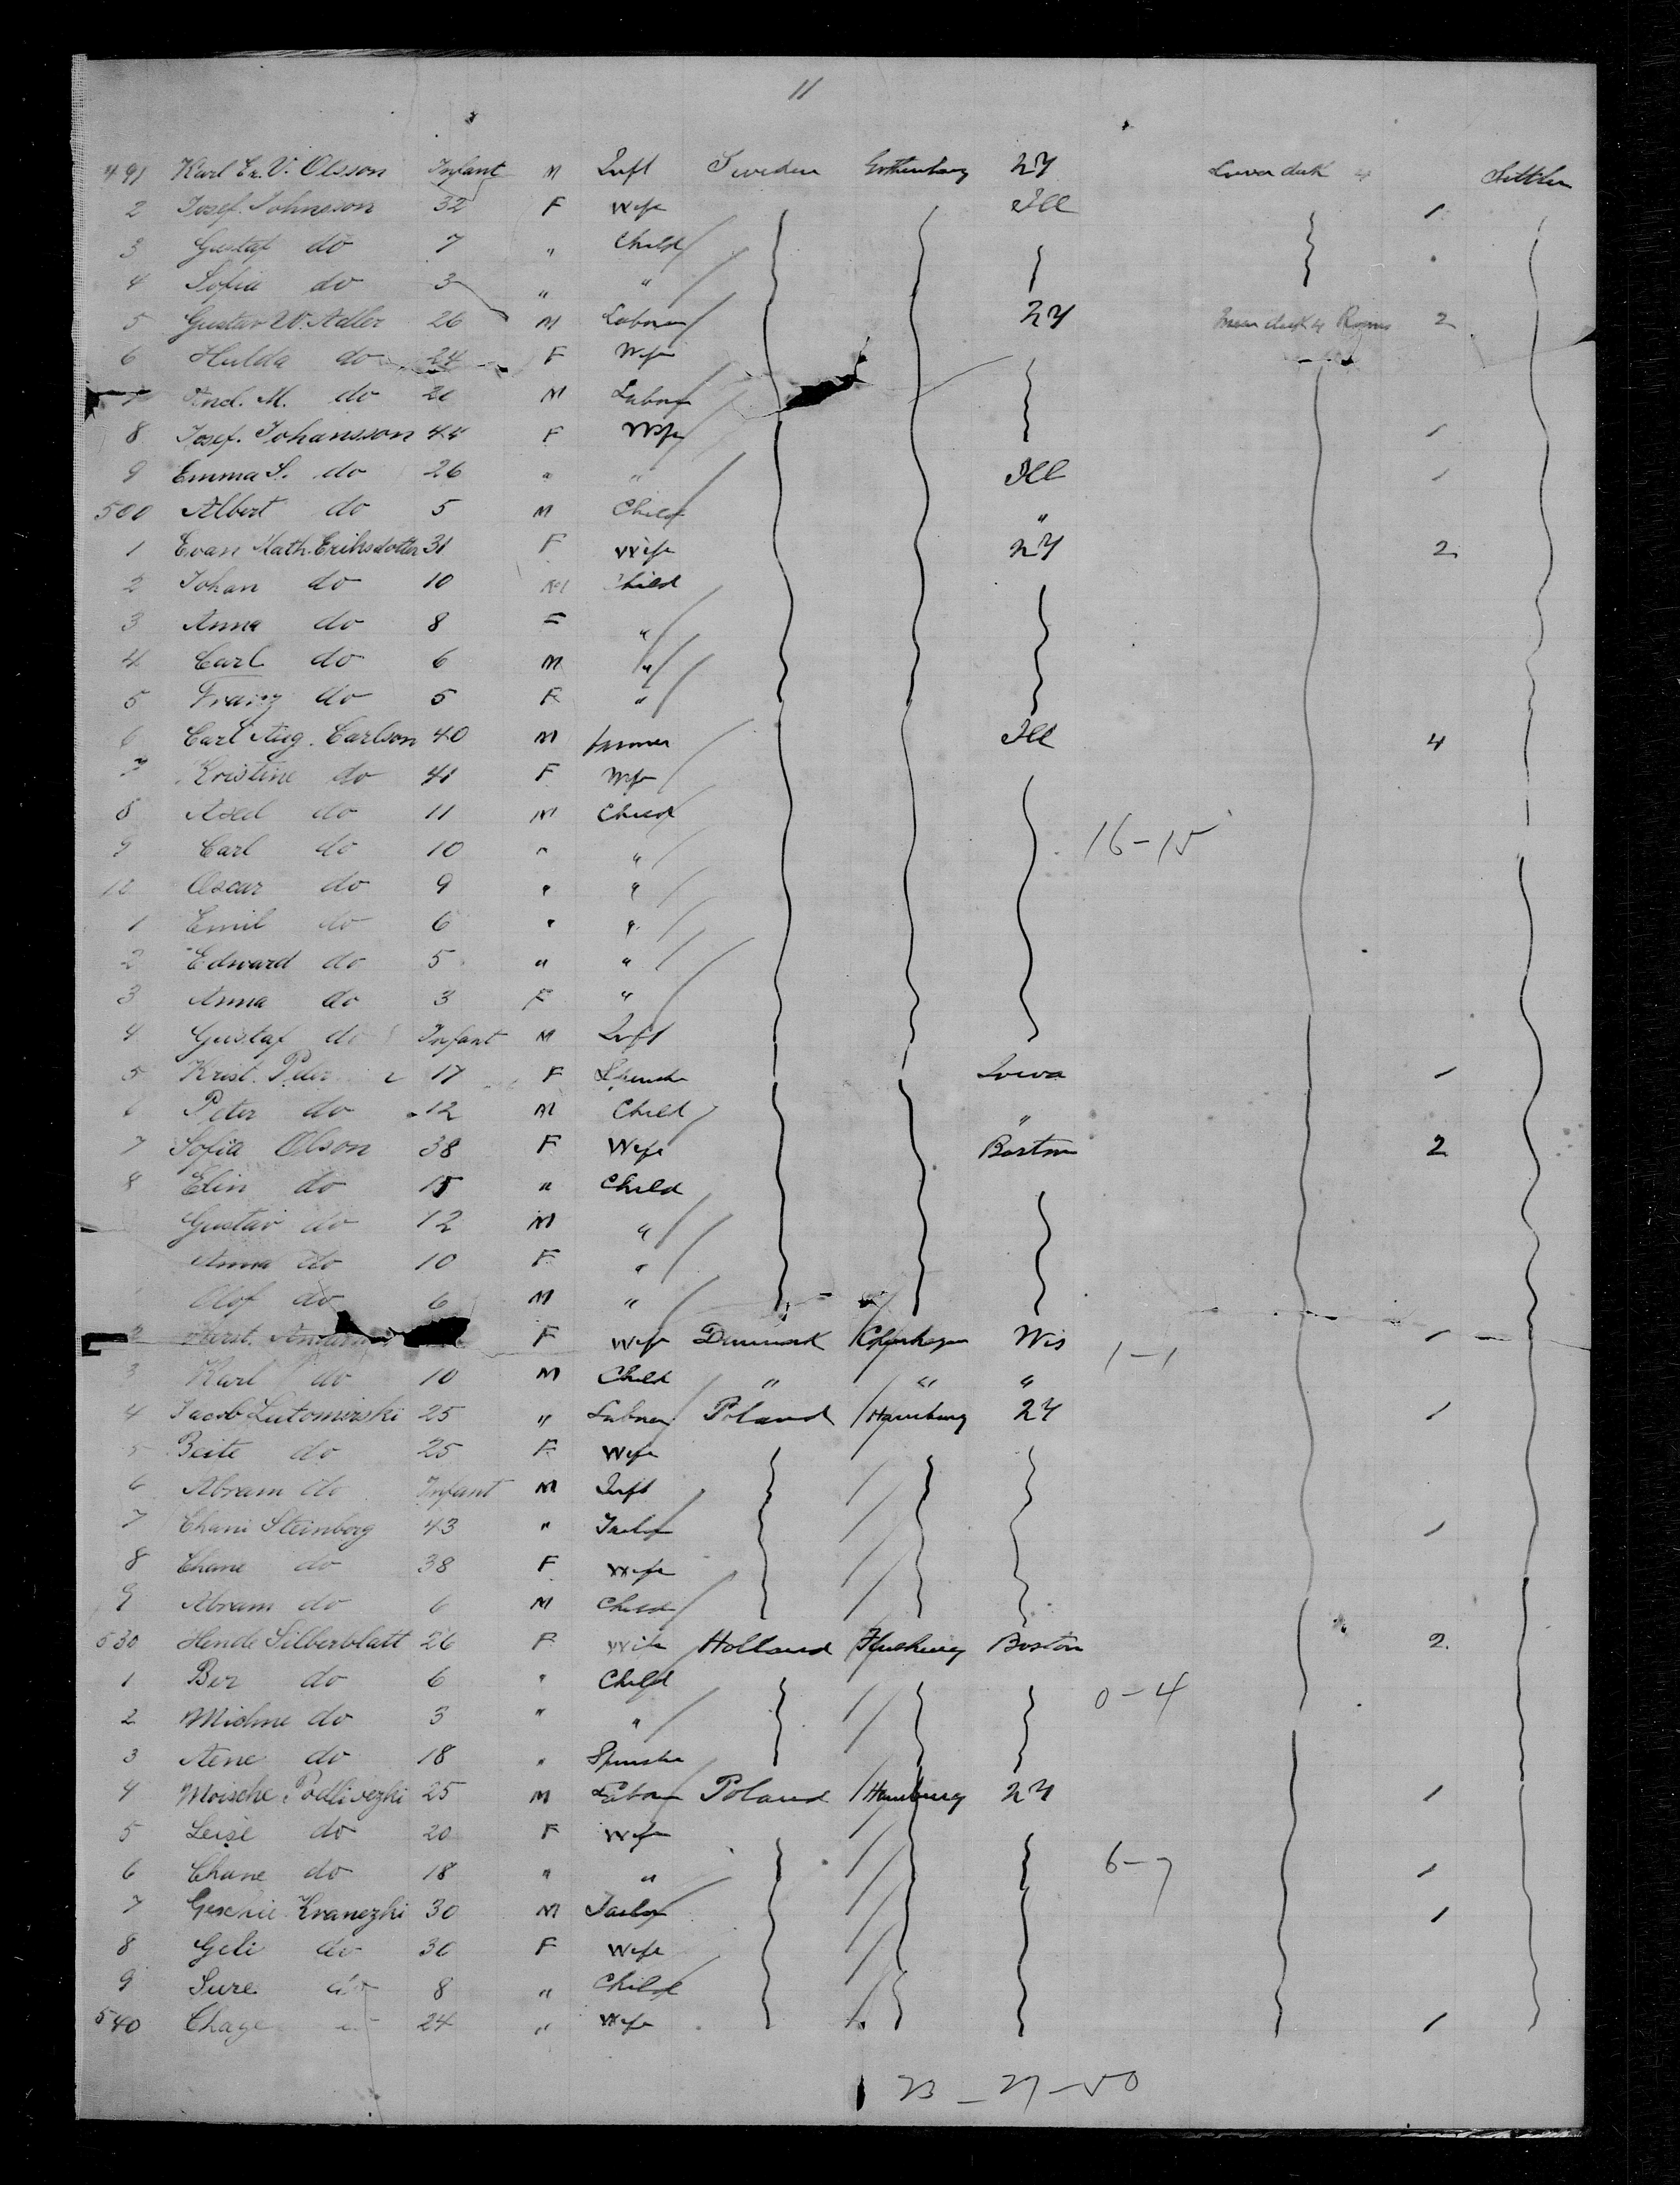 11
491 Karl Er. V. Olsson Infant M Inft Sweden Gothenburg NY Lower deck 4 Settler
2 Josef. Johnsson 32 F Wife Ill 1
3 Gustaf do 7 " Child
4 Sofia do 3 " "
5 Gustav W. Adler 26 M Labour NY 2
6 Hulda do 24 F Wife
7 And. M. do 20 M Labour
8 Josef. Johansson 44 F Wife 1
9 Emma S. do 26 " " Ill 1
500 Albert do 5 M Child "
1 Evan Math. Eriksdotter 31 F Wife NY 2
2 Johan do 10 M Child
3 Anna do 8 F "
4 Carl do 6 M "
5 Franz do 5 F "
6 Carl Aug. Carlson 40 M farmer Ill 4
7 Kristine do 41 F Wife
8 Axel do 11 M Child
9 Carl do 10 " " 16-15
10 Oscar do 9 " "
1 Emil do 6 " "
2 Edward do 5 " "
3 Anna do 3 F "
4 Gustaf do Infant M Inft
5 Krist. Peter 17 F Spinster Iowa 1
6 Peter do 12 M Child "
7 Sofia Olson 38 F Wife Boston 2
8 Elin do 15 " Child
Gustav do 12 M "
Anna do 10 F "
Olof do 6 M "
2 F Wife Denmark Copenhagen Wis 1-1 1
3 Karl do 10 M Child " " "
4 Jacob Lutomirski 25 " Labour Poland Hamburg NY 1
5 Beite do 25 F Wife
6 Abram do Infant M Inft
7 Chani Steinberg 43 " Tailor 1
8 Chane do 38 F Wife
9 Abram do 6 M Child
530 Hende Silberblatt 26 F Wife Holland Flushing Boston 2
1 Ber do 6 " Child 0-4
2 Michne do 3 " "
3 Aene do 18 " Spinster
4 Moische Podlivezhi 25 M Labour Poland Hamburg NY 1
5 Leise do 20 F Wife
6 Chane do 18 " " 6-7 1
7 Geschie Kranezhi 30 M Tailor 1
8 Geli do 30 F Wife
9 Sure do 8 " Child
540 Chaye 24 " Wife 1
23-27-50